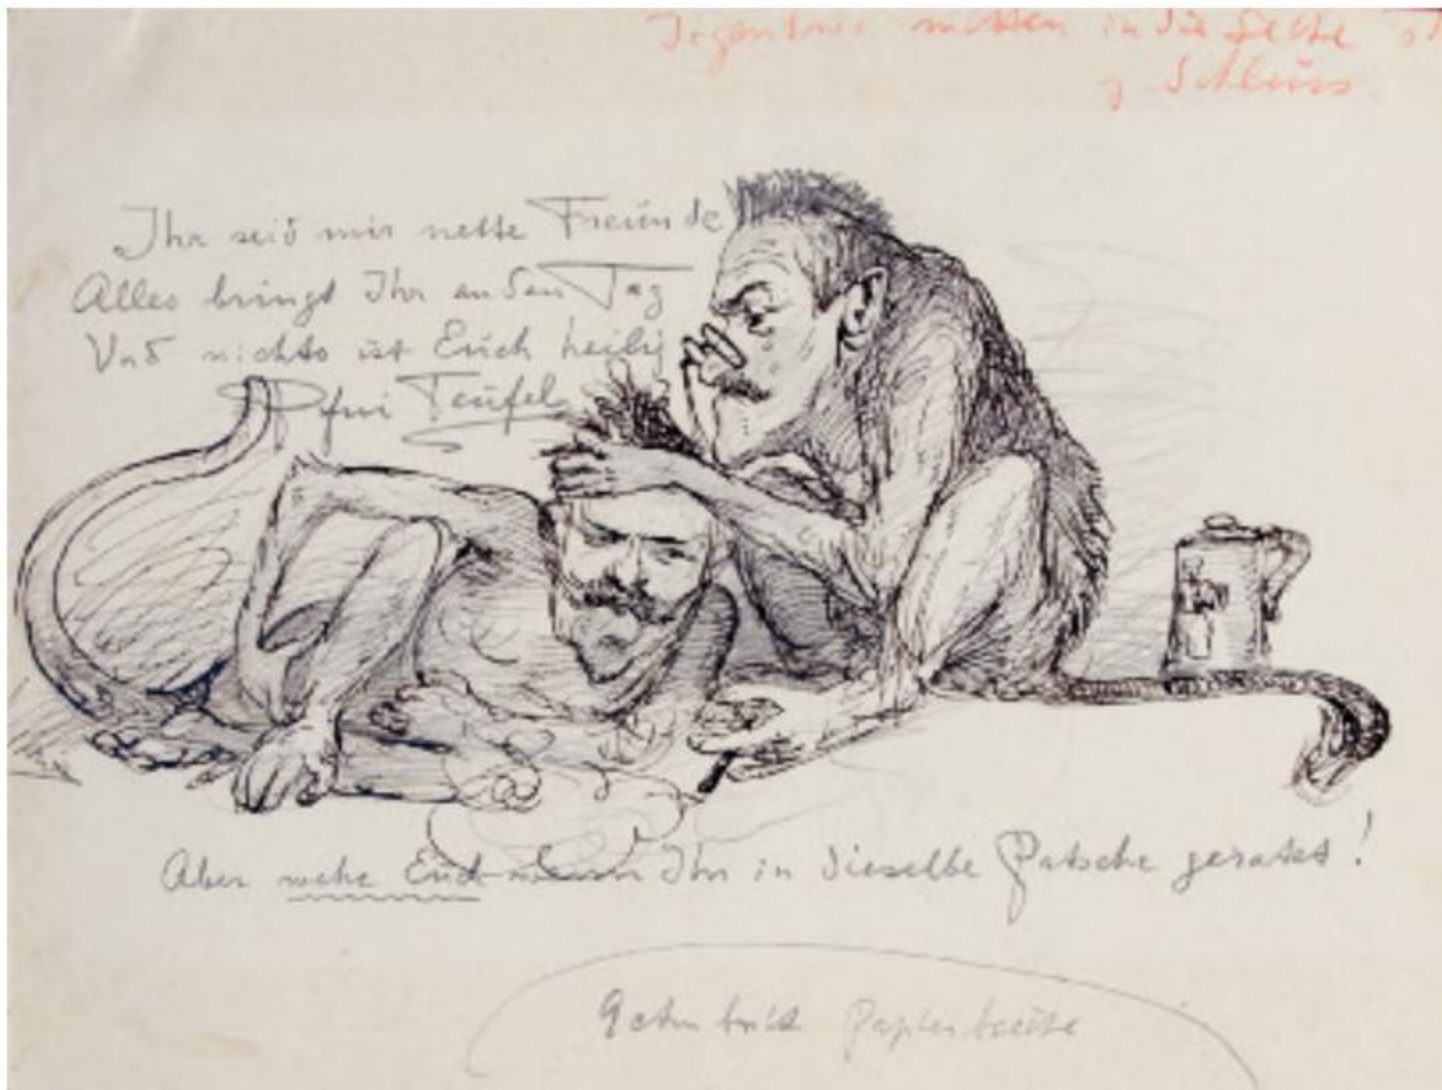 Irgendwo mitten in die Seite
z Schluss
Ihr seid mir nette Freunde
Alles bringt Ihr an den Tag
Und nichts ist Euch heilig
Pfui Teufel
Aber wehe Euch wenn Ihr in dieselbe Patsche geratet!
9 cm breit Papierbreite